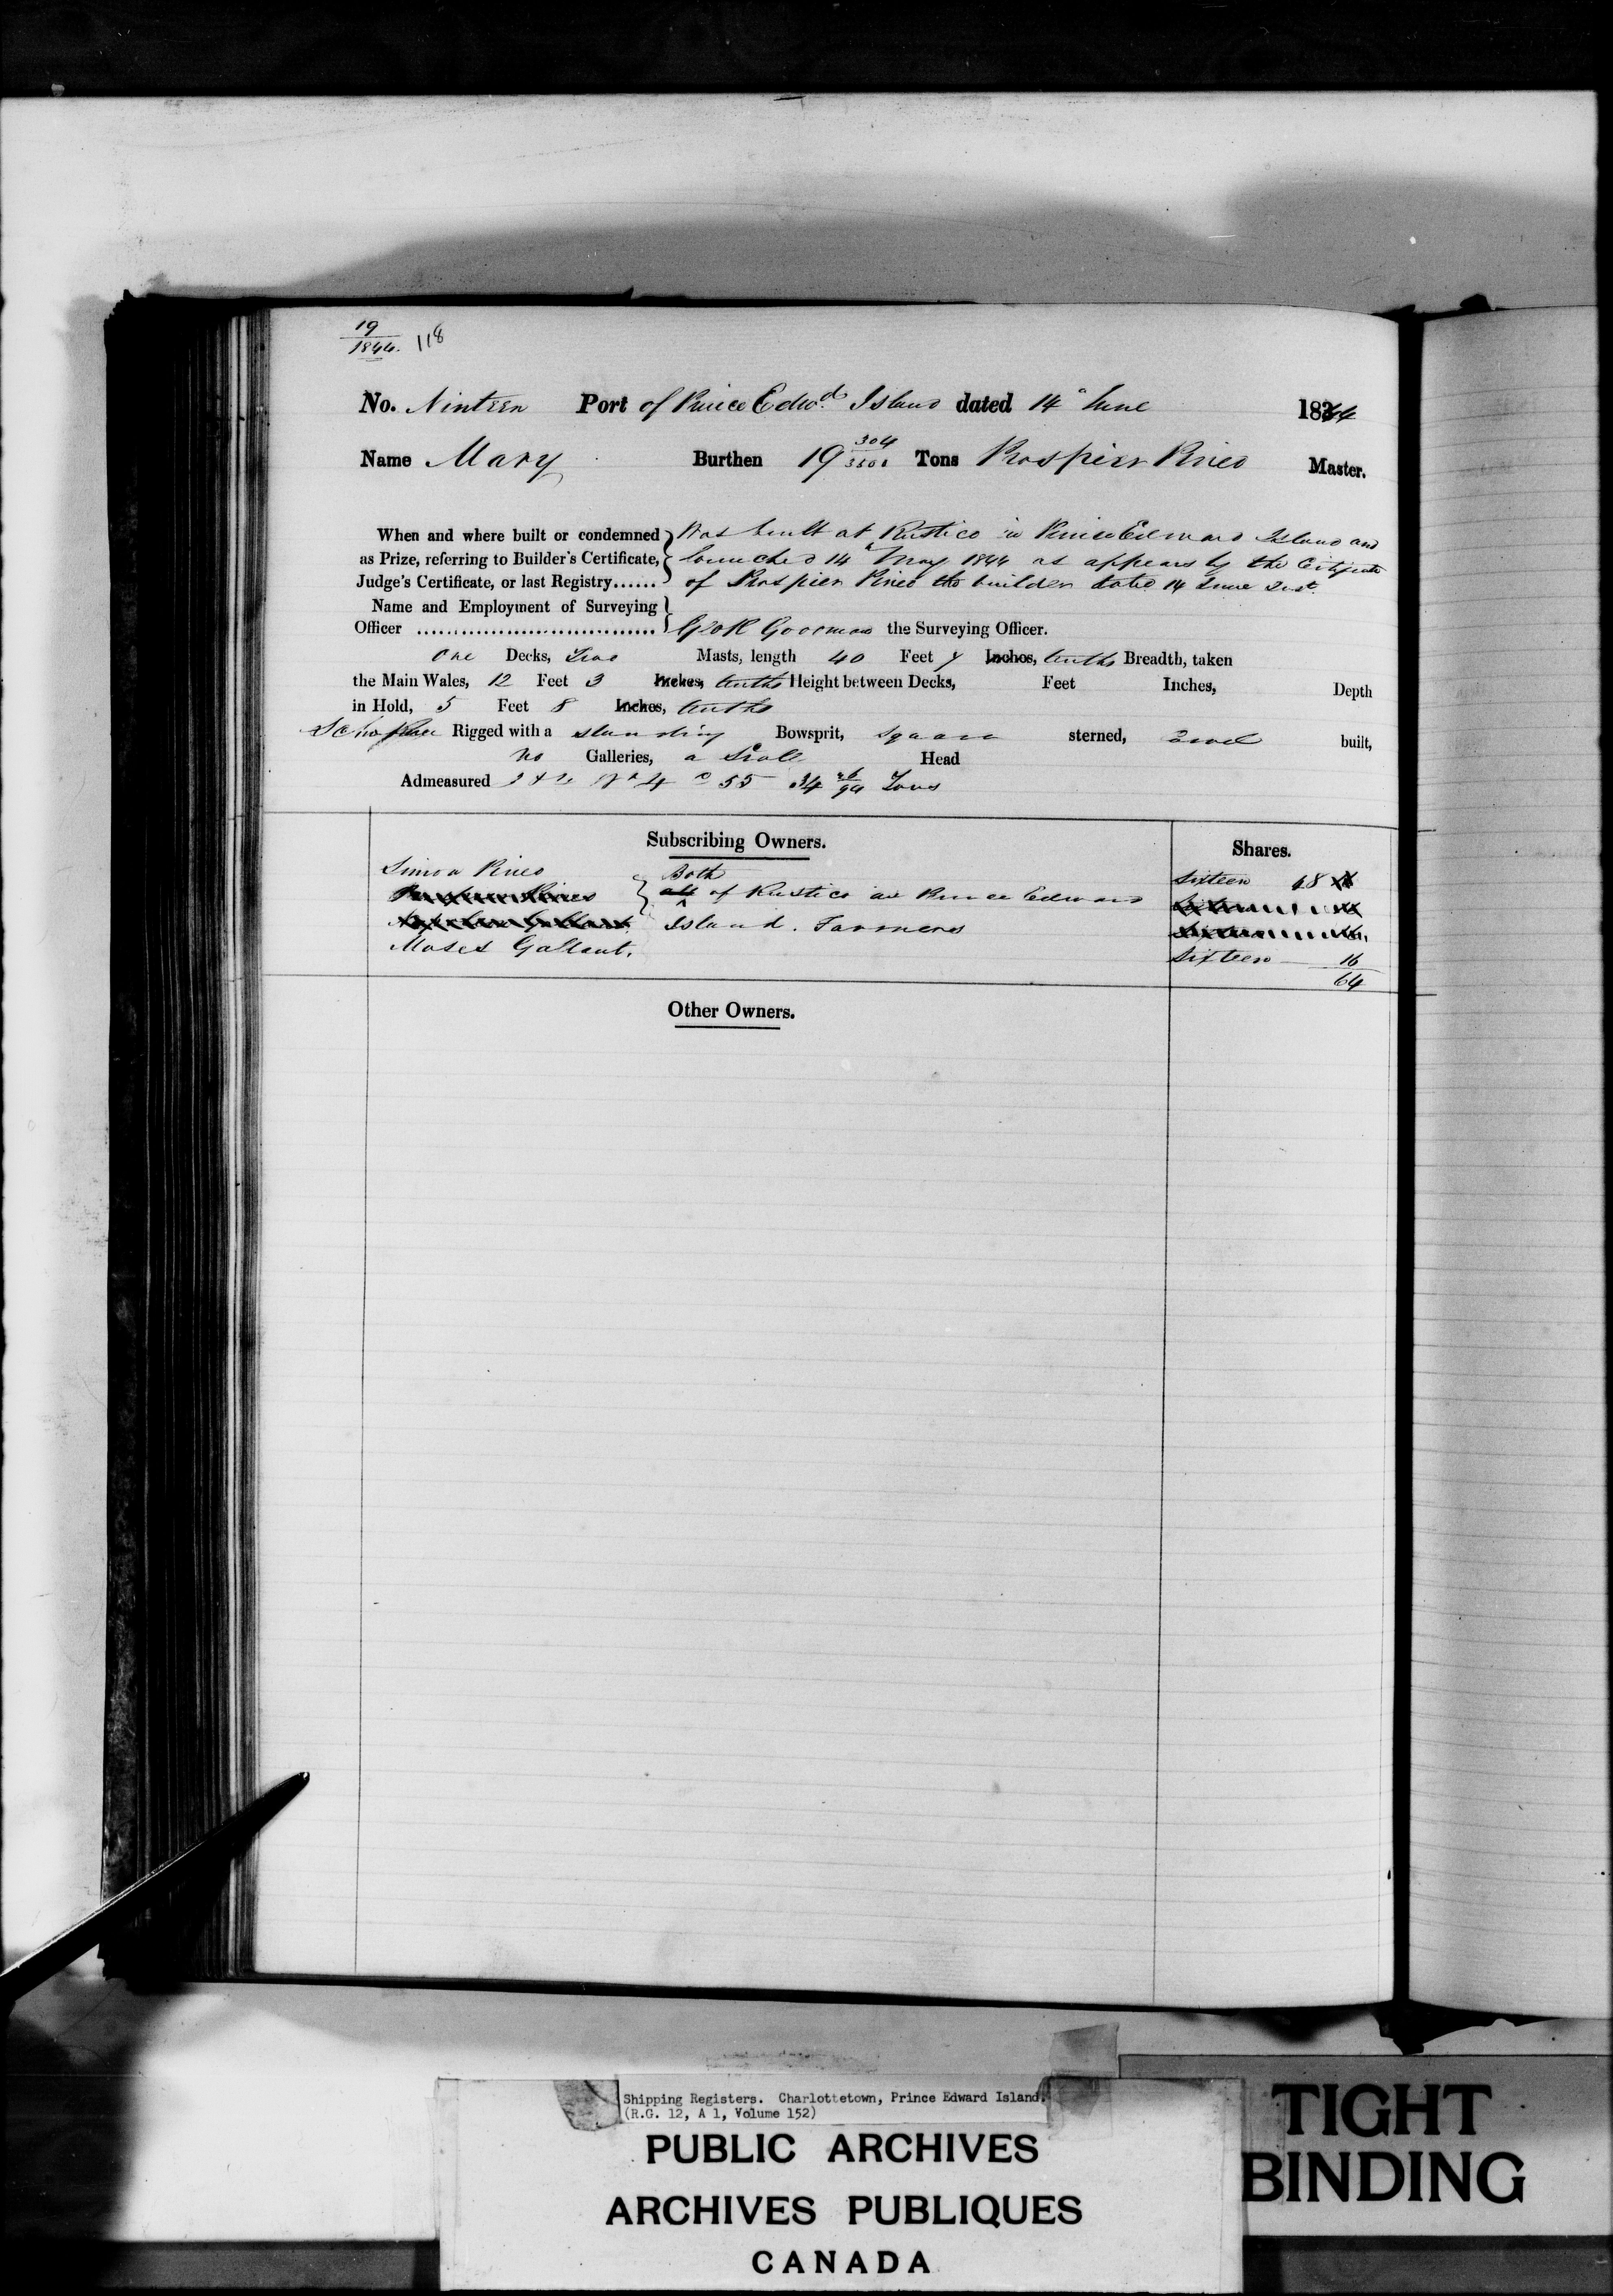 19
1844. 118
No. Ninteen Port of Prince Edwd. Island dated 14 June 1844
Name Mary Burthen 19 304/3500 Tons Prospier Pineo Master.
When and where built or condemned Was built at Rustico in Prince Edward Island and
as Prize, referring to Builder's Certificate, launched 14 May 1844 as appears by the Certificate
Judge's Certificate, or last Registry...... of Prospier Pineo the builder dated 14 June Inst.
Name and Employment of Surveying
Officer ................................ Geo R Goodman the Surveying Officer.
One Decks, Two Masts, length 40 Feet Inches, tenths Breadth, taken
the Main Wales, 12 Feet 3 Inches, tenths Height between Decks, Feet Inches, Depth
in Hold, 5 Feet 8 Inches, tenths
Schooner Rigged with a standing Bowsprit, Square sterned, built,
No Galleries, a Head
Admeasured 55 34 Tons
Subscribing Owners. Shares.
Simon Pineo Both Sixteen 48
all of Rustico in Prince Edward
Island. Farmers
Moses Gallant. Sixteen 16
64
Other Owners.
Shipping Registers. Charlottetown, Prince Edward Island.
(R.G. 12, A 1, Volume 152)
PUBLIC ARCHIVES
ARCHIVES PUBLIQUES
CANADA
TIGHT
BINDING